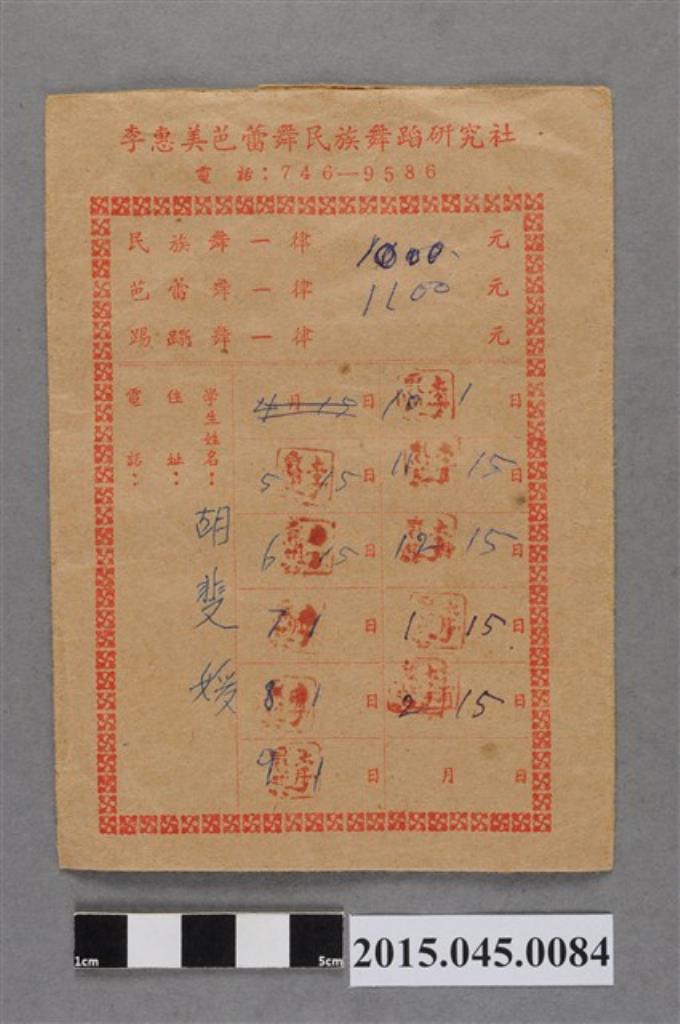 李惠美芭蕾舞民族舞蹈研究社
電話：746—9586
民族舞一律 1000. 元
芭蕾舞一律 1100 元
踢躂舞一律 元
學生姓名：胡斐媛
住址：
電話：
4月15日
5 15日
6 15日
7 1日
8 1日
9月1日
10 1日
11 15日
12 15日
1月15日
2月15日
月 日
1cm 5cm
2015.045.0084